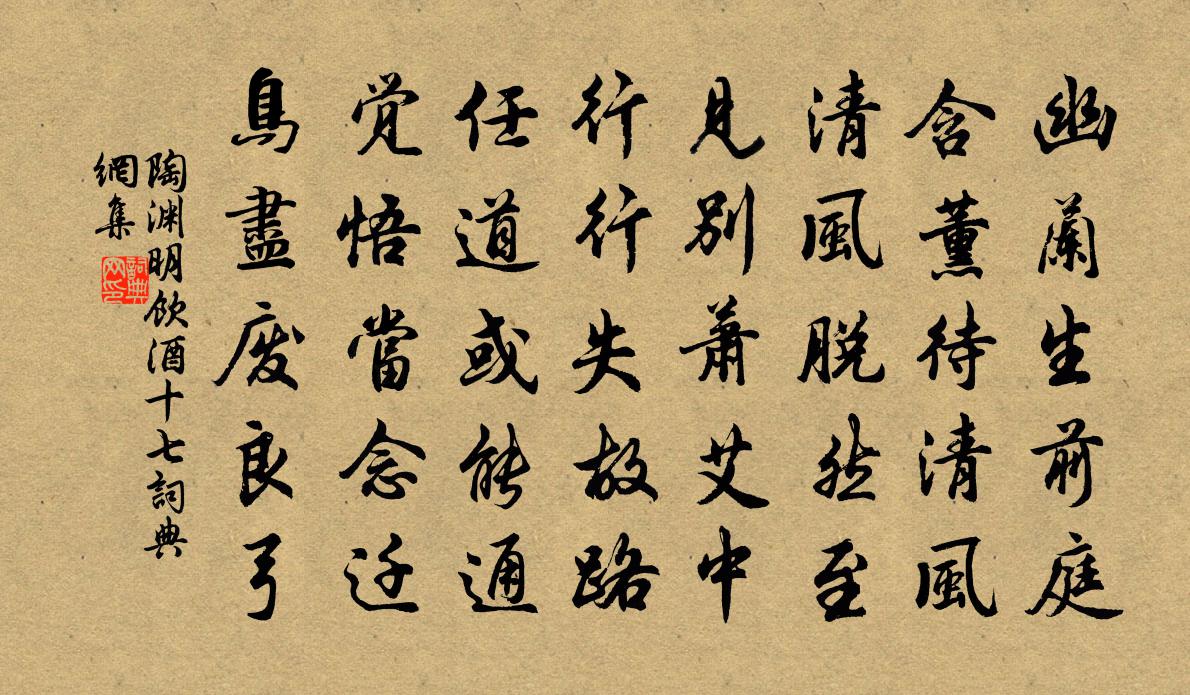 幽蘭生前庭
含薰待清風
清風脫然至
見別蕭艾中
行行失故路
任道或能通
覺悟當念還
鳥盡廢良弓
陶渊明飲酒十七詞典
網集
詞典
网印